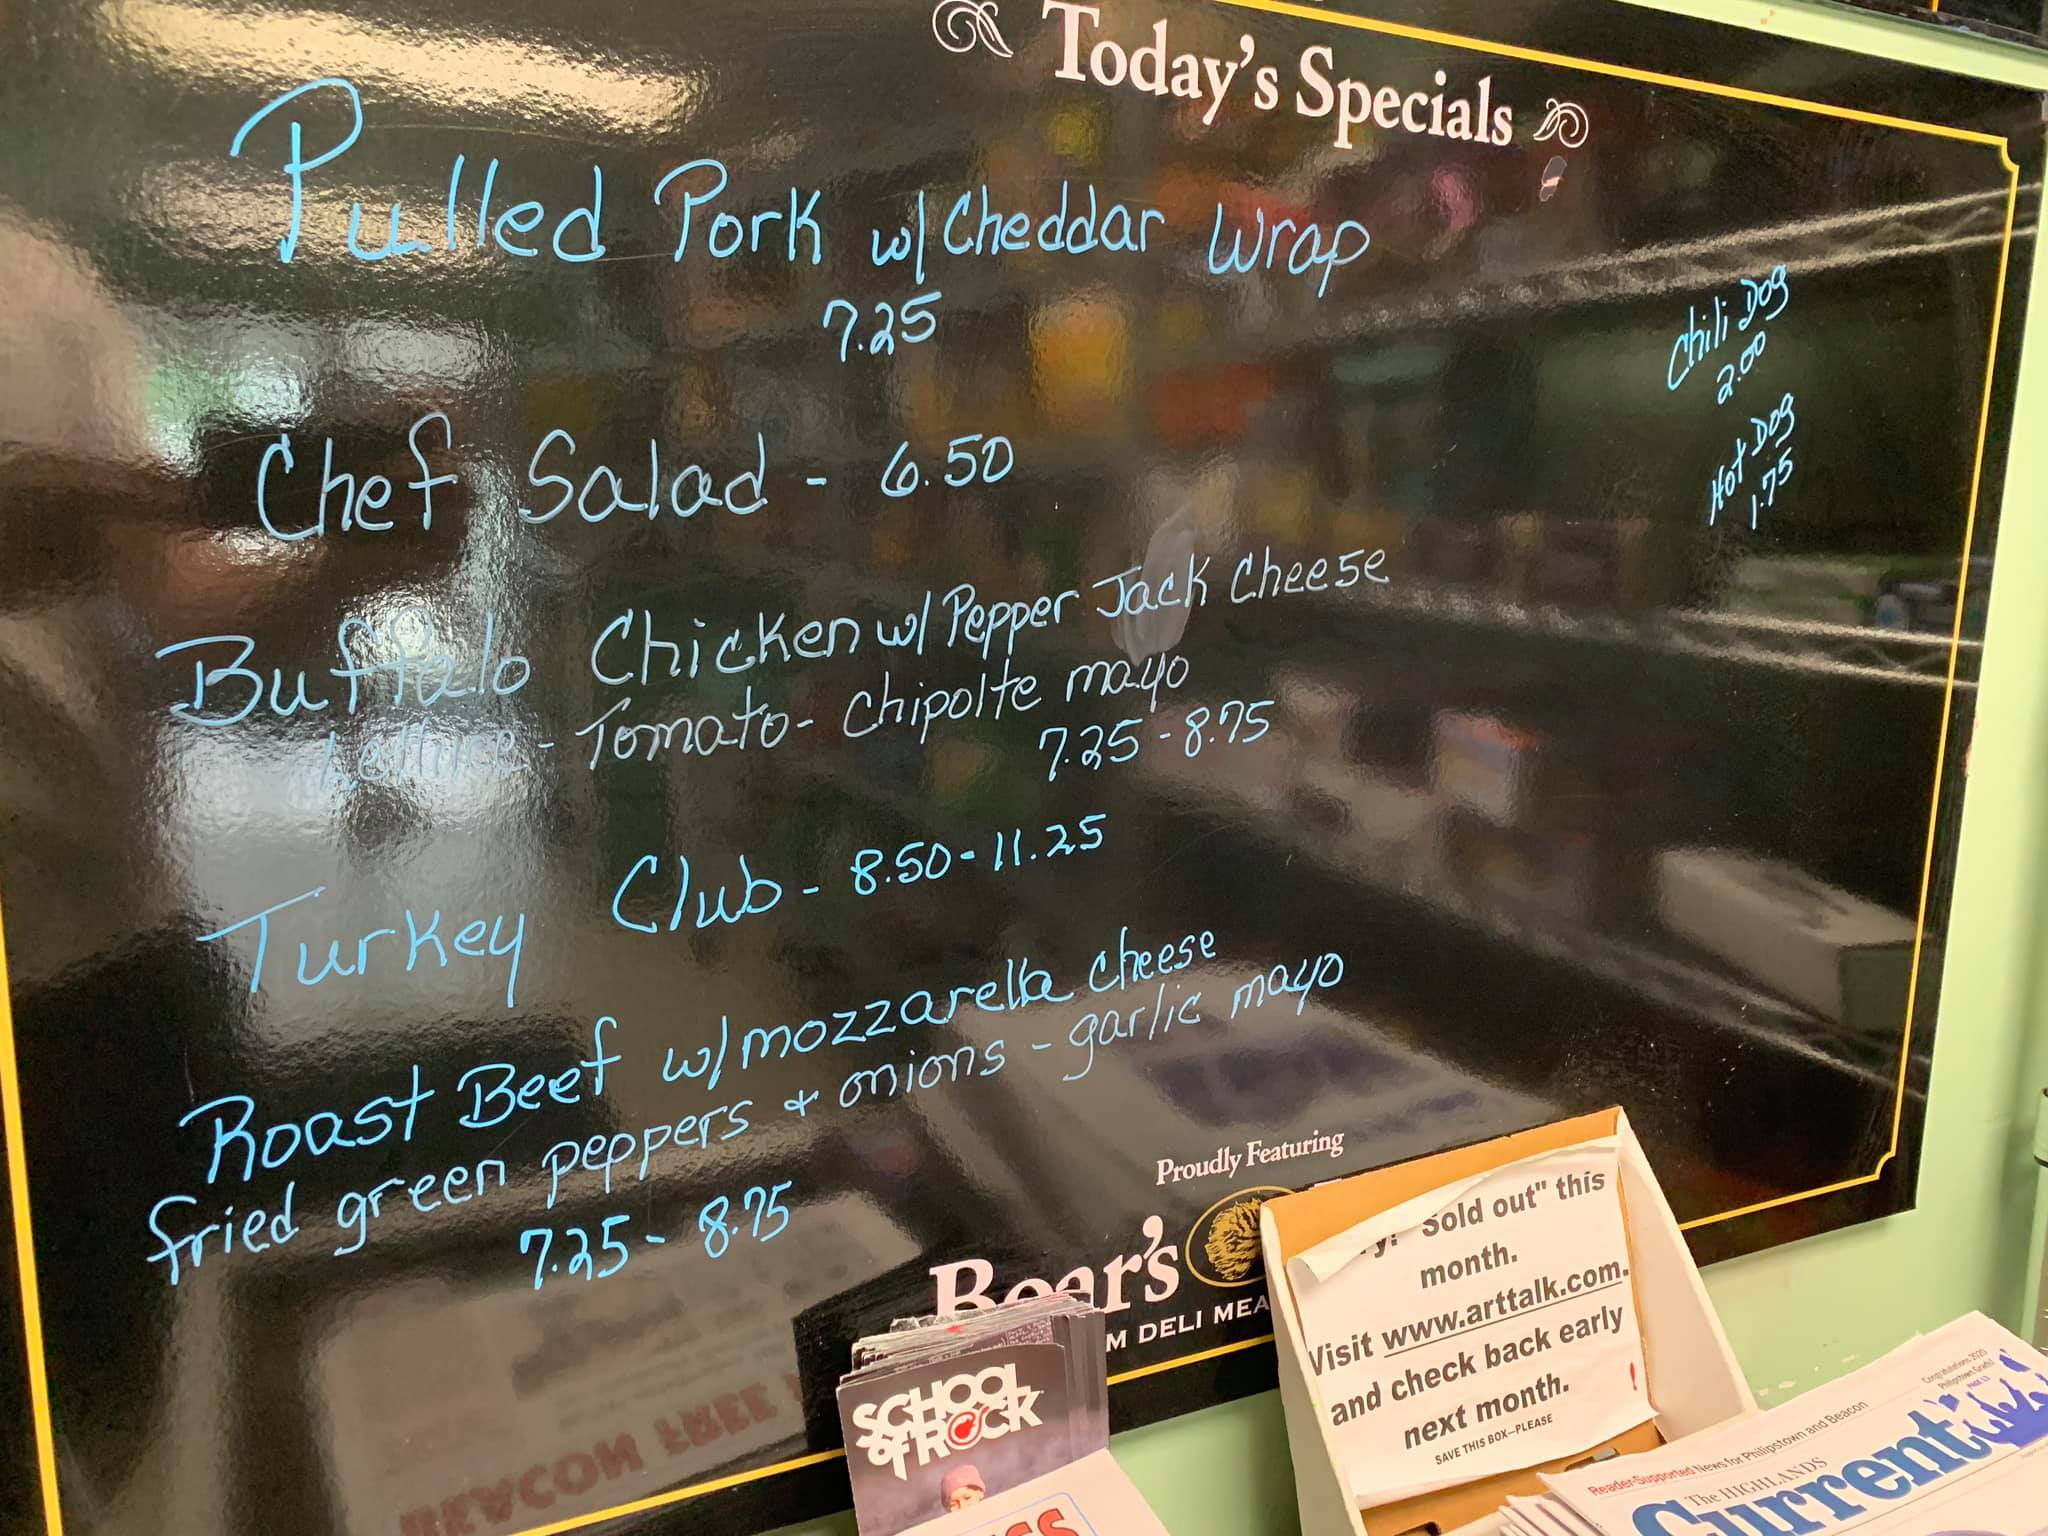 Today's Specials
Pulled Pork w/ Cheddar Wrap
7.25
Chili Dog
2.00
Hot Dog
1.75
Chef Salad - 6.50
Buffalo Chicken w/ Pepper Jack Cheese
Lettuce - Tomato - Chipolte mayo
7.25 - 8.75
Turkey Club - 8.50 - 11.25
Roast Beef w/ mozzarella cheese
fried green peppers + onions - garlic mayo
7.25 - 8.75
Proudly Featuring
Boar's
DELI
SCHOOL
OF ROCK
"Sold out" this
month.
Visit www.arttalk.com.
and check back early
next month.
!
SAVE THIS BOX—PLEASE
Congratulations 2020
Philipstown Grads!
PAGE 13
Reader-Supported News for Philipstown and Beacon
The HIGHLANDS
Current